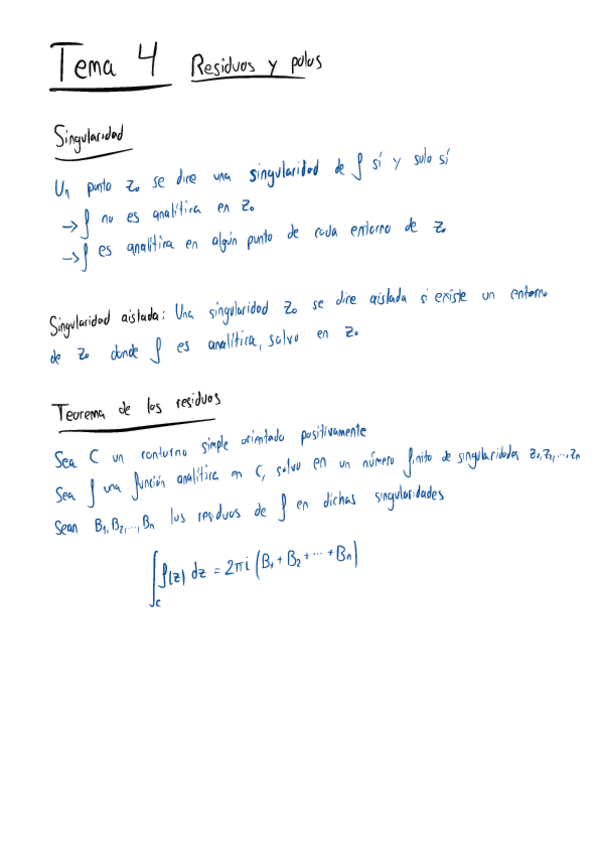 Tema 4 Residuos y polos
Singularidad
Un punto z₀ se dice una singularidad de f sí y solo sí
→ f no es analítica en z₀
→ f es analítica en algún punto de cada entorno de z₀
Singularidad aislada: Una singularidad z₀ se dice aislada si existe un entorno
de z₀ donde f es analítica, salvo en z₀
Teorema de los residuos
Sea C un contorno simple orientado positivamente
Sea f una función analítica en C, salvo en un número finito de singularidades z₁, ..., zₙ
Sean B₁, B₂, ..., Bₙ los residuos de f en dichas singularidades
∫_C f(z) dz = 2πi (B₁ + B₂ + ... + Bₙ)